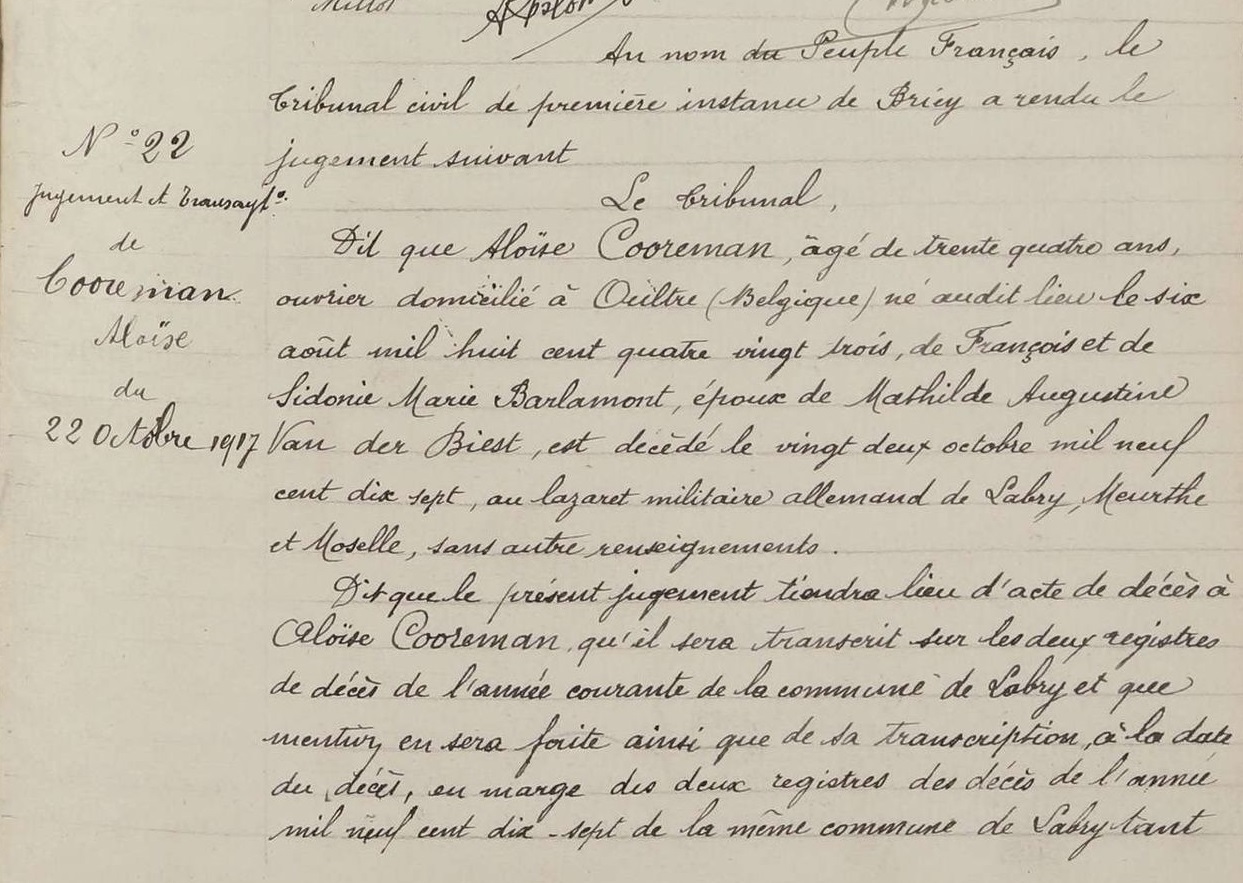 Millot
Au nom du Peuple Français, le
tribunal civil de première instance de Briey a rendu le
jugement suivant
Le tribunal,
N° 22
Jugement et Transcrpt°:
de
Cooreman
Aloïse
du
22 Octobre 1917
Dit que Aloïse Cooreman, âgé de trente quatre ans,
ouvrier domicilié à Oultre (Belgique) né audit lieu le six
août mil huit cent quatre vingt trois, de François et de
Sidonie Marie Barlamont, époux de Mathilde Augustine
Van der Biest, est décédé le vingt deux octobre mil neuf
cent dix sept, au lazaret militaire allemand de Labry, Meurthe
et Moselle, sans autre renseignements.
Dit que le présent jugement tiendra lieu d'acte de décès à
Aloïse Cooreman, qu'il sera transcrit sur les deux registres
de décès de l'année courante de la commune de Labry et que
mention en sera faite ainsi que de sa transcription, à la date
du décès, en marge des deux registres des décès de l'année
mil neuf cent dix-sept de la même commune de Labry tant